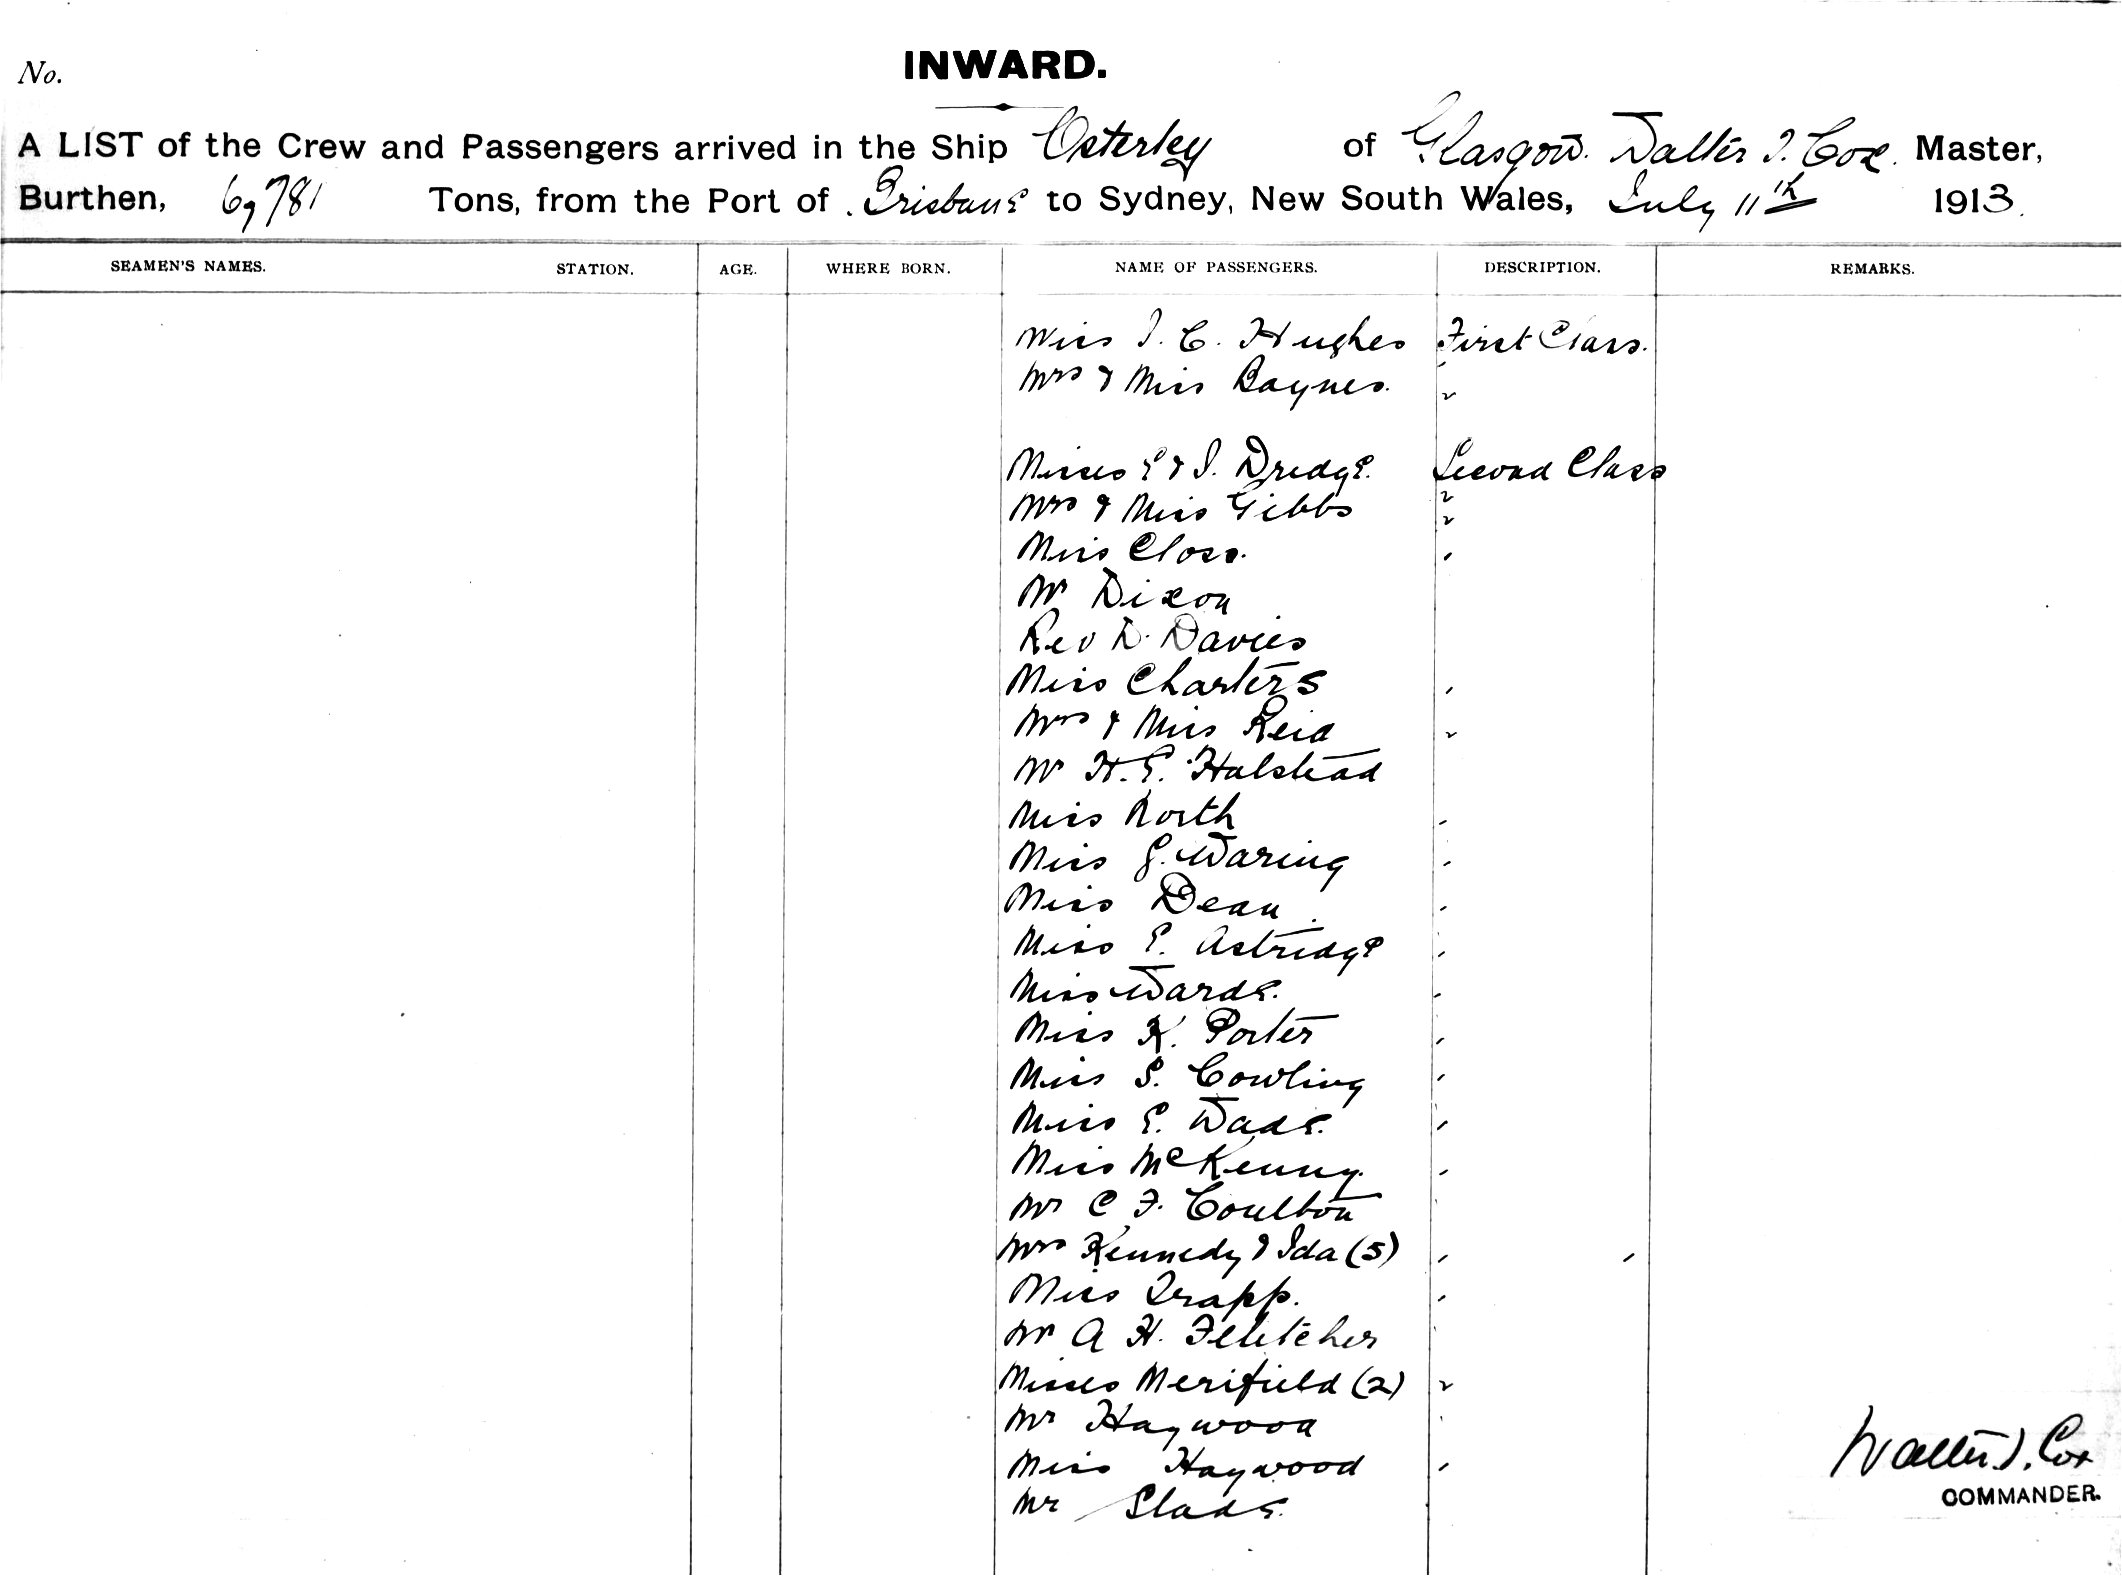 No.
INWARD.
A LIST of the Crew and Passengers arrived in the Ship Osterley of Glasgow. Walter J. Cox. Master,
Burthen, 6,781 Tons, from the Port of Brisbane to Sydney, New South Wales, July 11th 1913.
SEAMEN'S NAMES. STATION. AGE. WHERE BORN. NAME OF PASSENGERS. DESCRIPTION. REMARKS.
Miss I. C. Hughes First Class.
Mrs & Miss Baynes. "
Misses E & I. Dredge. Second Class
Mrs & Miss Gibbs "
Miss Closs. '
Mr Dixon
Rev D. Davies
Miss Charters '
Mrs & Miss Reid "
Mr H. E. Halstead
Miss North '
Miss G. Waring '
Miss Dean '
Miss E. Astridge '
Miss Warde. '
Miss K. Porter '
Miss S. Cowling '
Miss E. Wade. '
Miss McKenny. '
Mr C F. Coulton
Mrs Kennedy & Ida (5) ' '
Miss Trapp. '
Mr A H. Fletcher
Misses Merifield (2) "
Mr Haywood
Miss Haywood '
Mr Slade.
Walter J. Cox
COMMANDER.